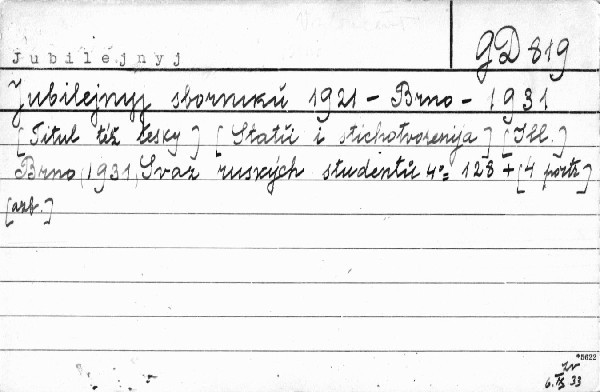 GD 819
Jubilejnyj
Jubilejnyj sborniků 1921 - Brno - 1931
[Titul též česky] [Statii i stichotvorenija] [Ill.]
Brno, 1931, Svaz ruských studentů 4° 128 + [4 portr]
[azb.]
*5622
6. IX 33